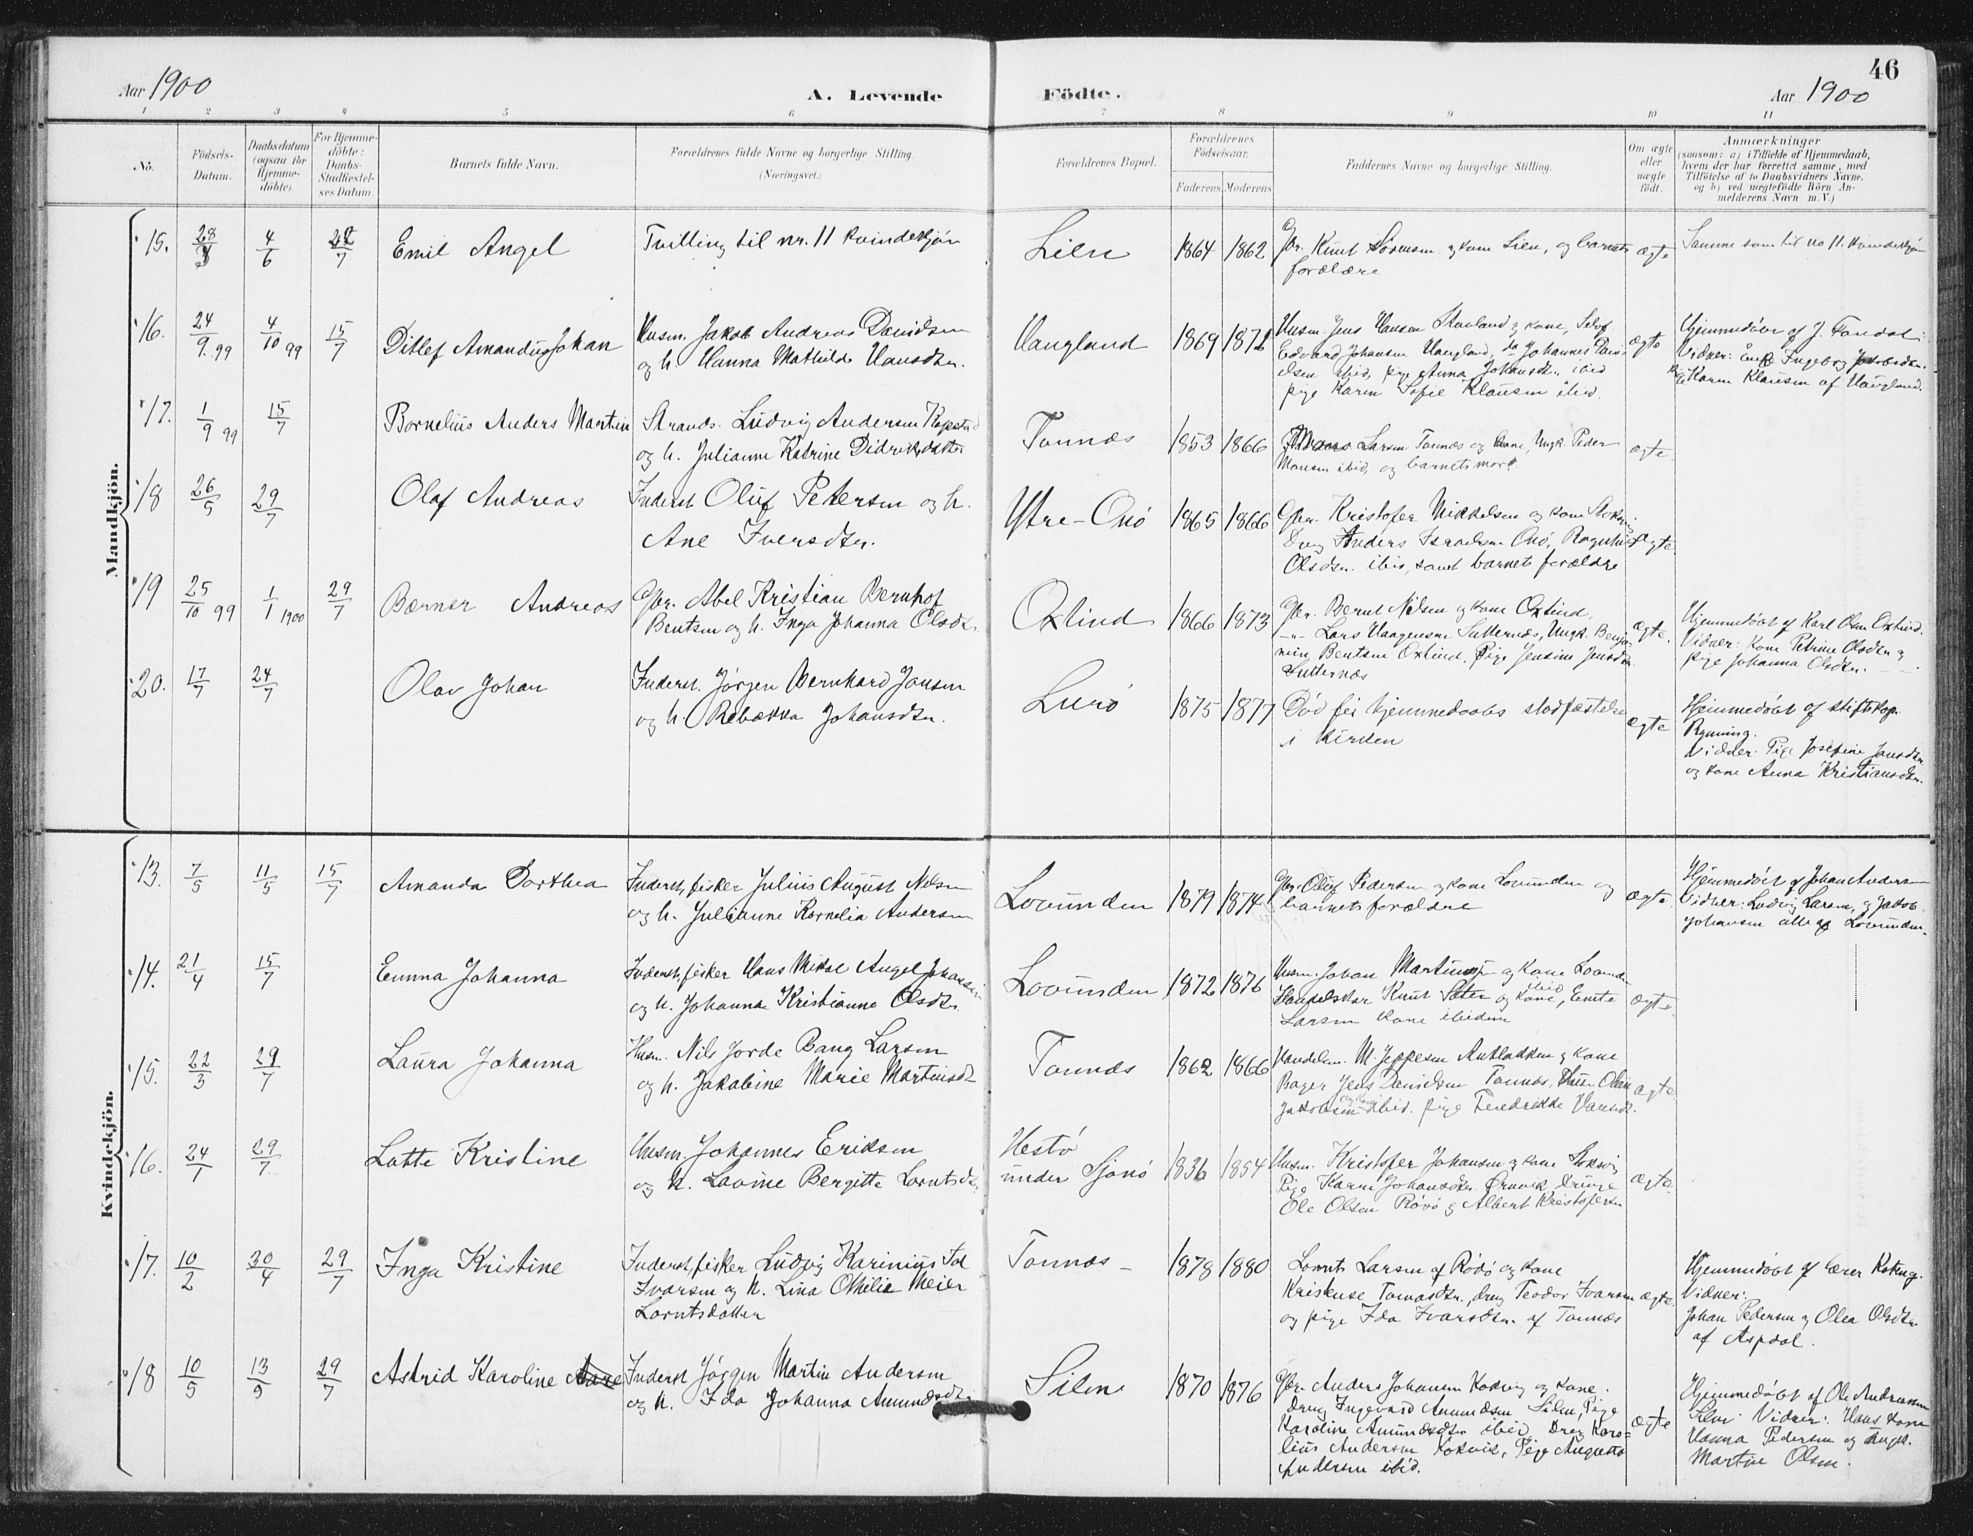 Aar 1900
A. Levende
Födte.
Aar 1900
46
1 2 3 4 5 6 7 8 9 10 11
No.
Födsels-
Datum.
Daabsdatum
(ogsaa for
Hjemme-
döbte).
For Hjemme-
döbte:
Daabs-
Stadfæstel-
ses Datum.
Barnets fulde Navn.
Forældrenes fulde Navne og borgerlige Stilling.
(Næringsvei.)
Forældrenes Bopæl.
Forældrenes
Födselsaar.
Faderens. Moderens.
Faddernes Navne og borgerlige Stilling.
Om ægte
eller
uægte
födt.
Anmærkninger
(saasom: a) i Tilfælde af Hjemmedaab,
hvem der har forrettet samme, med
Tilföielse af to Daabsvidners Navne.
og b) ved uægtefödte Börn An-
melderens Navn m. V.)
Mandkjön.
15. 4/6 Emil Angel
Tvilling til nr. 11 kvindekjøn
1864 1862
Gbr. Knut og kone og barnets
forældre
ægte
Samme som til no 11. kvindekjøn
16. 24/9 99 4/10 99 15/7 Ditlef Amandus Johan
Husm. Jakob Andreas Davidsen
og h. Hanna Mathilde Hansdtr.
Haugland 1869 1871
Husm. Jens Hansen og kone,
Edvard Johansen Haugland, Johannes
ibid, pige Anna Johansdtr. ibid
pige Karen Sofie Klausen ibid.
ægte
Hjemmedøbt af J.
Vidner: Enke Ingeborg
Karen Klausen af Haugland.
17. 1/9 99 15/7 Bornelius Anders Martin
Strands. Ludvig Andersen
og h. Julianne Katrine Didriksdatter
Tonnæs 1853 1866
Larsen Tonnæs og kone, Ungk. Peder
Monsen ibid, og barnets mor.
ægte
18 26/5 29/7 Olaf Andreas
Inderst Oluf Petersen og h.
Ane Iversdtr.
Ytre-Onø 1865 1866
Gbr. Kristofer Mikkelsen og kone
Dreng Anders Israelsen Onø,
Olsdtr. ibid, samt barnets forældre
ægte
19 25/10 99 1/1 1900 29/7 Berner Andreas
Gbr. Abel Kristian Bernhof
Bentsen og h. Inga Johanna Olsdtr.
Oxtind 1866 1873
Gbr. Bernt Nilsen og kone Oxtind,
-"- Lars Haagensen Sutternæs, Ungk. Benja-
min Bentsen Oxtind. Pige Jensine Jensdtr.
Sutternæs
ægte.
Hjemmedøbt af Karl Olsen Oxtind.
Vidner: Kone Petrine Olsdtr. og
pige Johanna Olsdtr.
20. 17/7 24/7 Olav Johan
Inderst. Jørgen Bernhard Jonsen
og h. Rebækka Johansdtr.
Lurø 1875 1877
Død før hjemmedaabs stadfæstelse
i kirken
ægte
Hjemmedøbt af stiftskap.
Rynning.
Vidner: Pige Josefine Jonsdtr.
og kone Anna Kristiansdtr.
Kvindekjön.
13. 7/5 11/5 15/7 Amanda Dorthea
Inderst, fisker Julius August Nilsen
og h. Julianne Kornelia Andersen
Lovunden 1879 1874
Gbr. Oluf Pedersen og kone Lovunden og
barnets forældre
ægte
Hjemmedøbt af Johan Andersen
Vidner: Ludvig Larsen, og Jakob
Johansen alle af Lovunden.
14. 21/4 15/7 Emma Johanna
Inderst, fisker Hans Mikal Angel Johansen
og h. Johanna Kristianne Olsdtr.
Lovunden 1872 1876
Husm. Johan Martinussen og Kone
Handelskar Knut og kone ibid,
Larsen kone ibidem
ægte
15. 22/3 29/7 Laura Johanna
Husm. Nils Jorde Bang Larsen
og h. Jakobine Marie Martinsdtr.
Tonnæs 1862 1866
Handelsm. M. Jeppesen og kone
Bager Jens Danielsen Tonnæs,
Jakobsen ibid. pige Fredrikke
ægte
16. 24/7 29/7 Lotte Kristine
Husm. Johannes Eriksen
og h. Lovine Bergitte Lorntsdtr.
Hestø
under Sjonø 1836 1854
Husm. Kristofer Johansen og kone
Pige Karen Johansdtr. Ørnvik, Drenge
Ole Olsen Røvø og Albert Kristofersen
ægte
17. 10/2 30/4 29/7 Inga Kristine
Inderst, fisker Ludvig Karinius
Ivarsen og h. Lina Othilie Meier
Lorntsdatter
Tonnæs 1878 1880
Lornts Larsen af Rødø og kone
Tomasdtr., dreng Teodor Ivarsen
og pige Ida Ivarsdtr. af Tonnæs
ægte
Hjemmedøbt af lærer
Vidner:
Johan Pedersen og Olea Olsdtr.
af Aspdal.
18 10/5 13/9 29/7 Astrid Karoline
Inderst Jørgen Martin Andersen
og h. Ida Johanna Amundsdtr.
1870 1876
Gbr. Anders Johansen og kone.
dreng Ingevard Amundsen Pige
Karoline Amundsdtr. ibid, Dreng Karo-
lius Andersen Kokvik, Pige Augusta
Andersen ibid.
ægte
Hjemmedøbt af Ole Andreassen
Vidner: Hans kone
Hanna Pedersen og Ungk.
Martin Olsen.